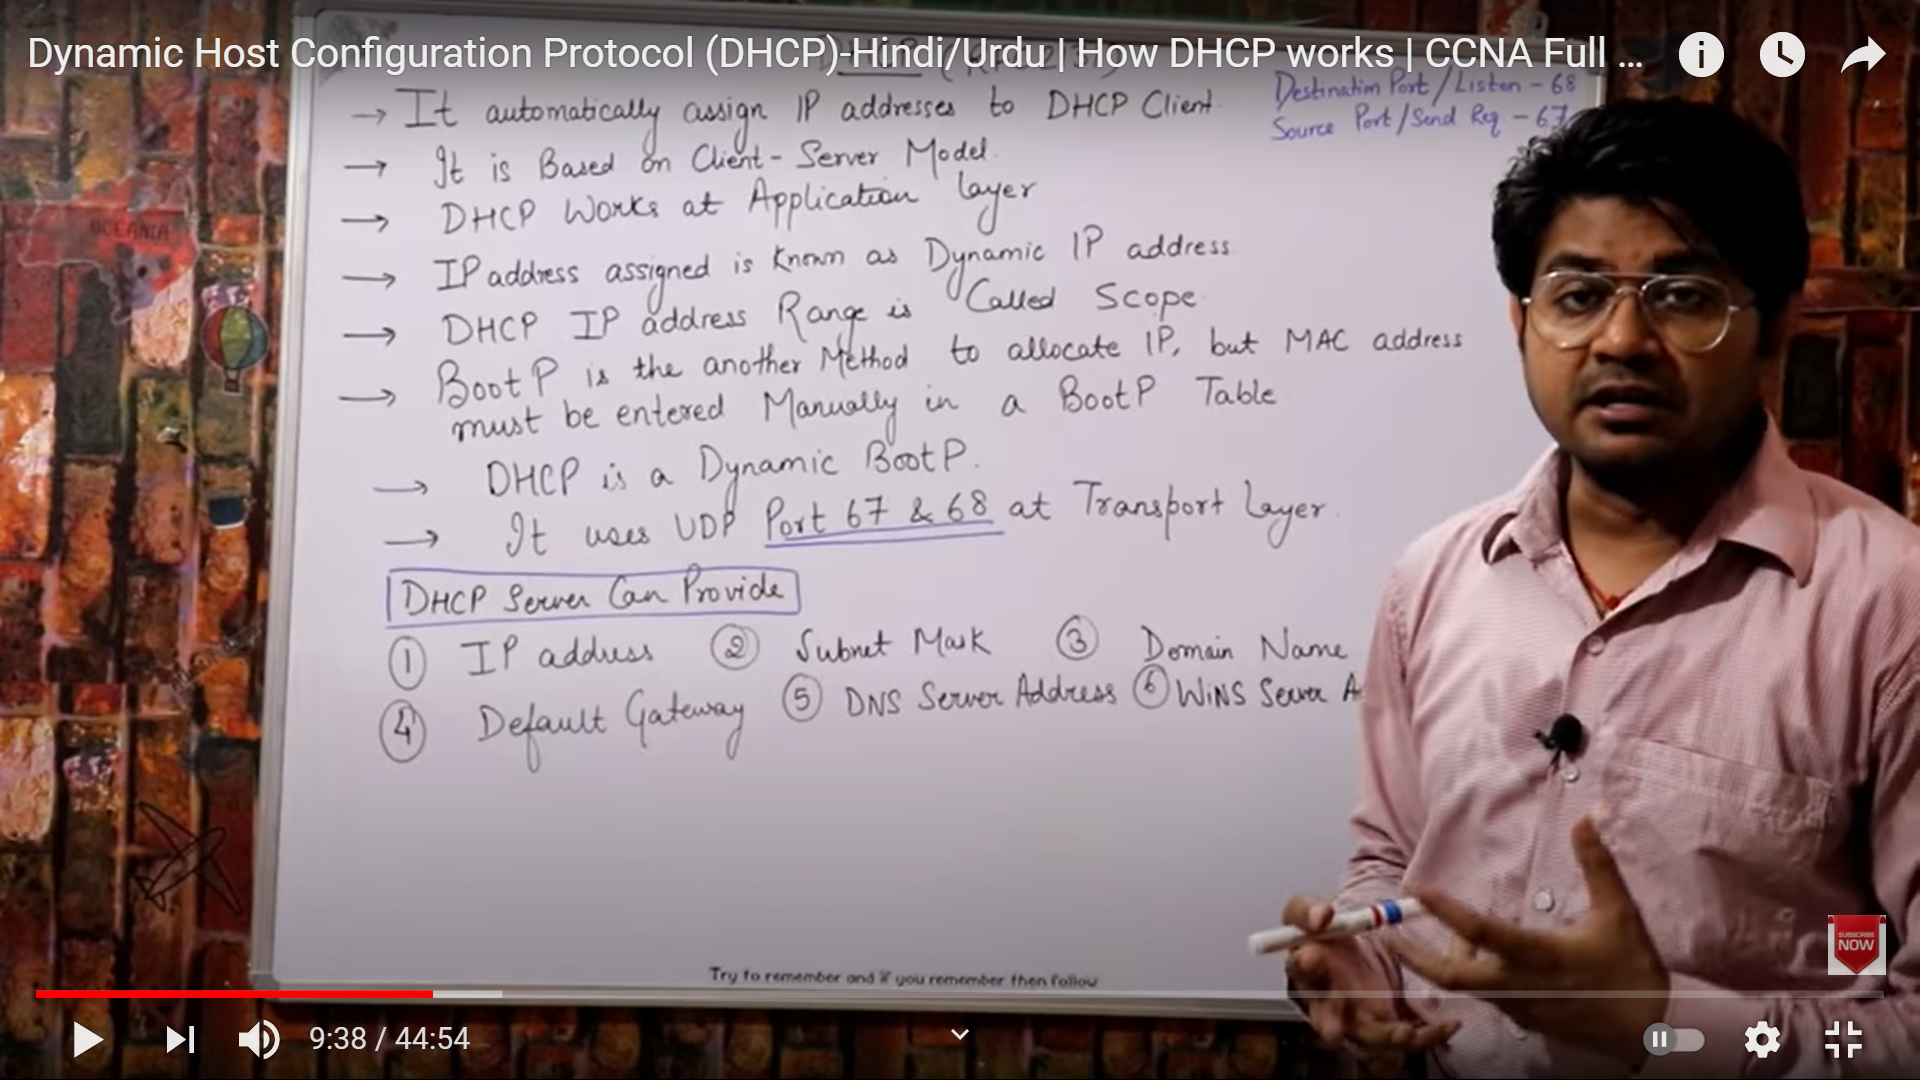 Dynamic Host Configuration Protocol (DHCP)-Hindi/Urdu | How DHCP works | CCNA Full ...
Destination Port / Listen - 68
Source Port / Send Req - 67
→ It automatically assign IP addresses to DHCP Client.
→ It is Based on Client - Server Model.
→ DHCP Works at Application layer
→ IP address assigned is known as Dynamic IP address.
→ DHCP IP address Range is Called Scope.
→ BootP is the another Method to allocate IP, but MAC address
must be entered Manually in a BootP Table.
→ DHCP is a Dynamic BootP.
→ It uses UDP Port 67 & 68 at Transport Layer.
DHCP Server Can Provide
① IP address ② Subnet Mask ③ Domain Name
④ Default Gateway ⑤ DNS Server Address ⑥ WINS Server A
Try to remember and if you remember then follow
OCEANIA
SUBSCRIBE
NOW
9:38 / 44:54